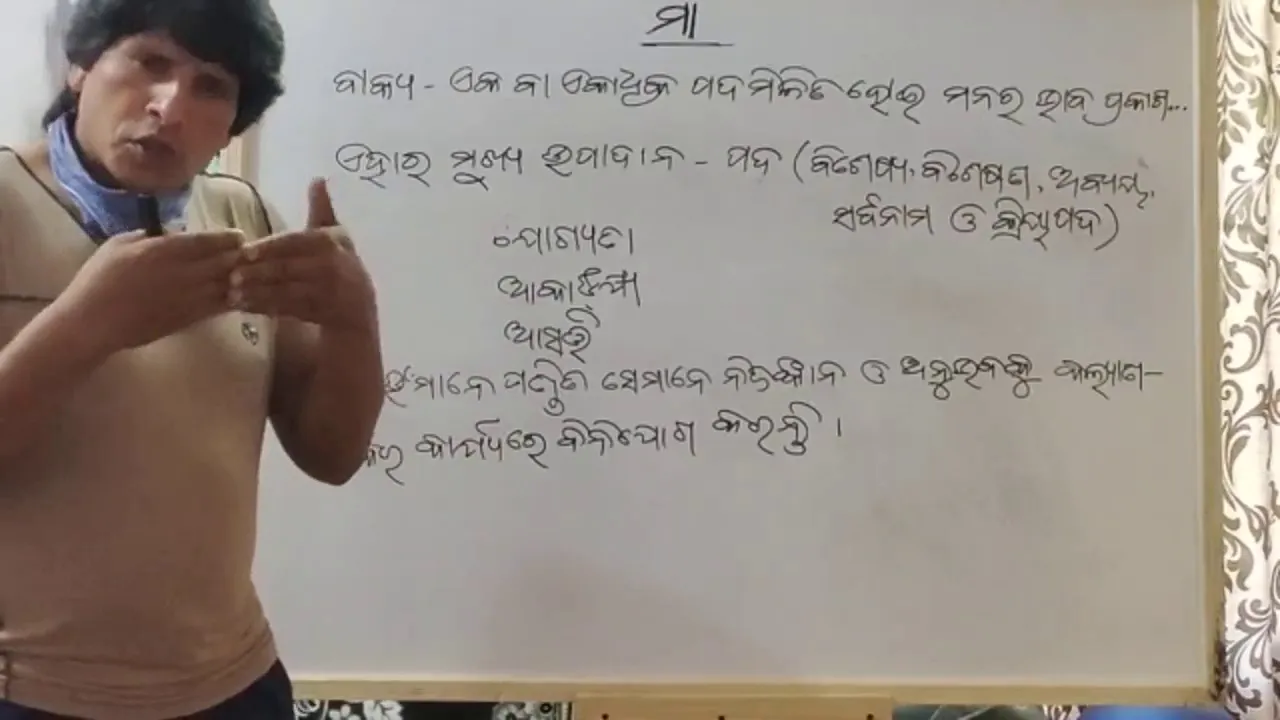 ମା
ବାକ୍ୟ - ଏକ ବା ଏକାଧିକ ପଦ ମିଳିତ ହୋଇ ମନର ଭାବ ପ୍ରକାଶ...
ଏହାର ମୁଖ୍ୟ ଉପାଦାନ - ପଦ (ବିଶେଷ୍ୟ, ବିଶେଷଣ, ଅବ୍ୟୟ,
ସର୍ବନାମ ଓ କ୍ରିୟାପଦ)
ଯୋଗ୍ୟତା
ଆକାଂକ୍ଷା
ଆସତ୍ତି
ମାନେ ପଣ୍ଡିତ ସେମାନେ ନିଜଜ୍ଞାନ ଓ ଅନୁଭବକୁ କଲ୍ୟାଣ-
କର କାର୍ଯ୍ୟରେ ବିନିଯୋଗ କରନ୍ତି ।